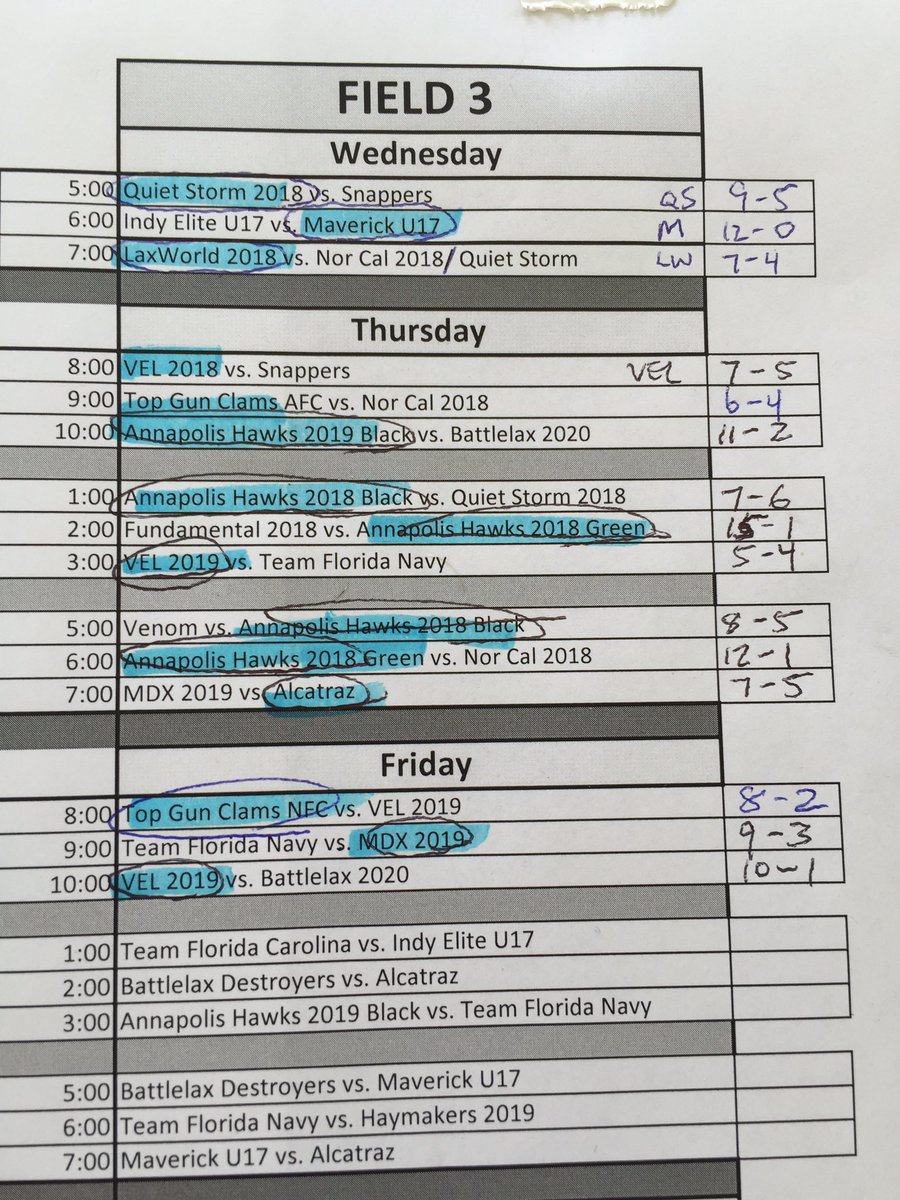 FIELD 3
Wednesday
5:00 Quiet Storm 2018 vs. Snappers QS 9-5
6:00 Indy Elite U17 vs. Maverick U17 M 12-0
7:00 LaxWorld 2018 vs. Nor Cal 2018/ Quiet Storm LW 7-4
Thursday
8:00 VEL 2018 vs. Snappers VEL 7-5
9:00 Top Gun Clams AFC vs. Nor Cal 2018 6-4
10:00 Annapolis Hawks 2019 Black vs. Battlelax 2020 11-2
1:00 Annapolis Hawks 2018 Black vs. Quiet Storm 2018 7-6
2:00 Fundamental 2018 vs. Annapolis Hawks 2018 Green 15-1
3:00 VEL 2019 vs. Team Florida Navy 5-4
5:00 Venom vs. Annapolis Hawks 2018 Black 8-5
6:00 Annapolis Hawks 2018 Green vs. Nor Cal 2018 12-1
7:00 MDX 2019 vs Alcatraz 7-5
Friday
8:00 Top Gun Clams NFC vs. VEL 2019 8-2
9:00 Team Florida Navy vs. MDX 2019 9-3
10:00 VEL 2019 vs. Battlelax 2020 10-1
1:00 Team Florida Carolina vs. Indy Elite U17
2:00 Battlelax Destroyers vs. Alcatraz
3:00 Annapolis Hawks 2019 Black vs. Team Florida Navy
5:00 Battlelax Destroyers vs. Maverick U17
6:00 Team Florida Navy vs. Haymakers 2019
7:00 Maverick U17 vs. Alcatraz